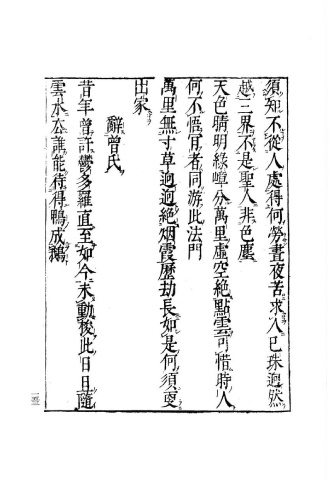 須知不從人處得何勞晝夜苦求人已珠迥然
越三界不是聖人非色塵
天色晴明綠嶂分萬里虛空絕點雲可惜時人
何不悟冝者同游此法門
萬里無寸草迥迥絕烟霞歷劫長如是何須更
出家
辭曾氏
昔年曾許鬱多羅直至如今未動梭此旧日隨
雲水去誰能待得鴨成鵝